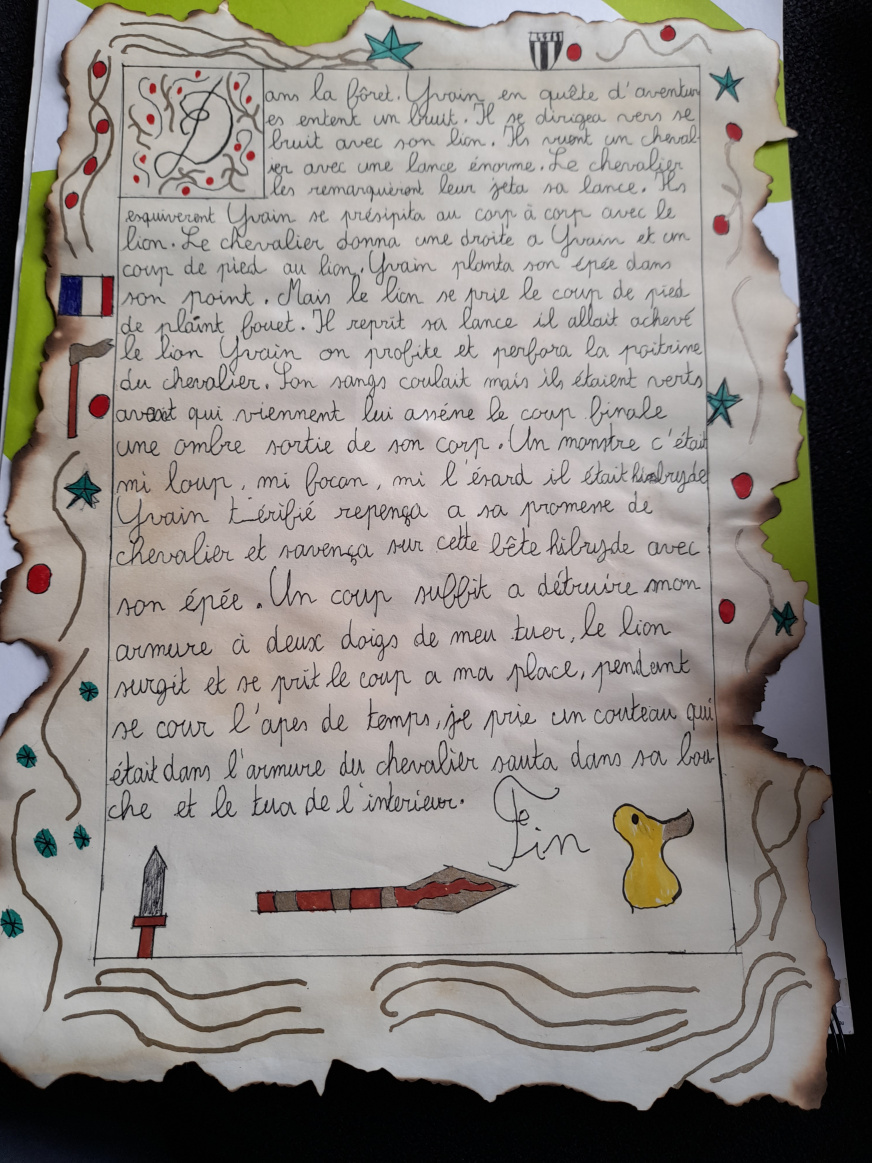 Dans la fôret. Yvain en quête d'aventur
es entent un bruit. Il se dirigea vers se
bruit avec son lion. Ils virent un cheval-
ier avec une lance énorme. Le chevalier
les remarquèrent leur jeta sa lance. Ils
esquivèrent Yvain se présipita au corp à corp avec le
lion. Le chevalier donna une droite a Yvain et un
coup de pied au lion. Yvain planta son épée dans
son point. Mais le lion se prie le coup de pied
de plaint fouet. Il reprit sa lance il allait achevé
le lion Yvain on profite et perfora la poitrine
du chevalier. Son sangs coulait mais ils étaient verts
avant qui viennent lui asséne le coup finale
une ombre sortie de son corp. Un monstre c'était
mi loup, mi focan, mi l'ésard il était hibryde
Yvain térifié repença a sa promene de
chevalier et savença sur cette bête hibryde avec
son épée. Un coup suffit a détruire mon
armure à deux doigs de meu tuer, le lion
surgit et se prit le coup a ma place, pendant
se cour l'apes de temps, je prie un couteau qui
était dans l'armure du chevalier sauta dans sa bou
che et le tua de l'interieur.
Fin